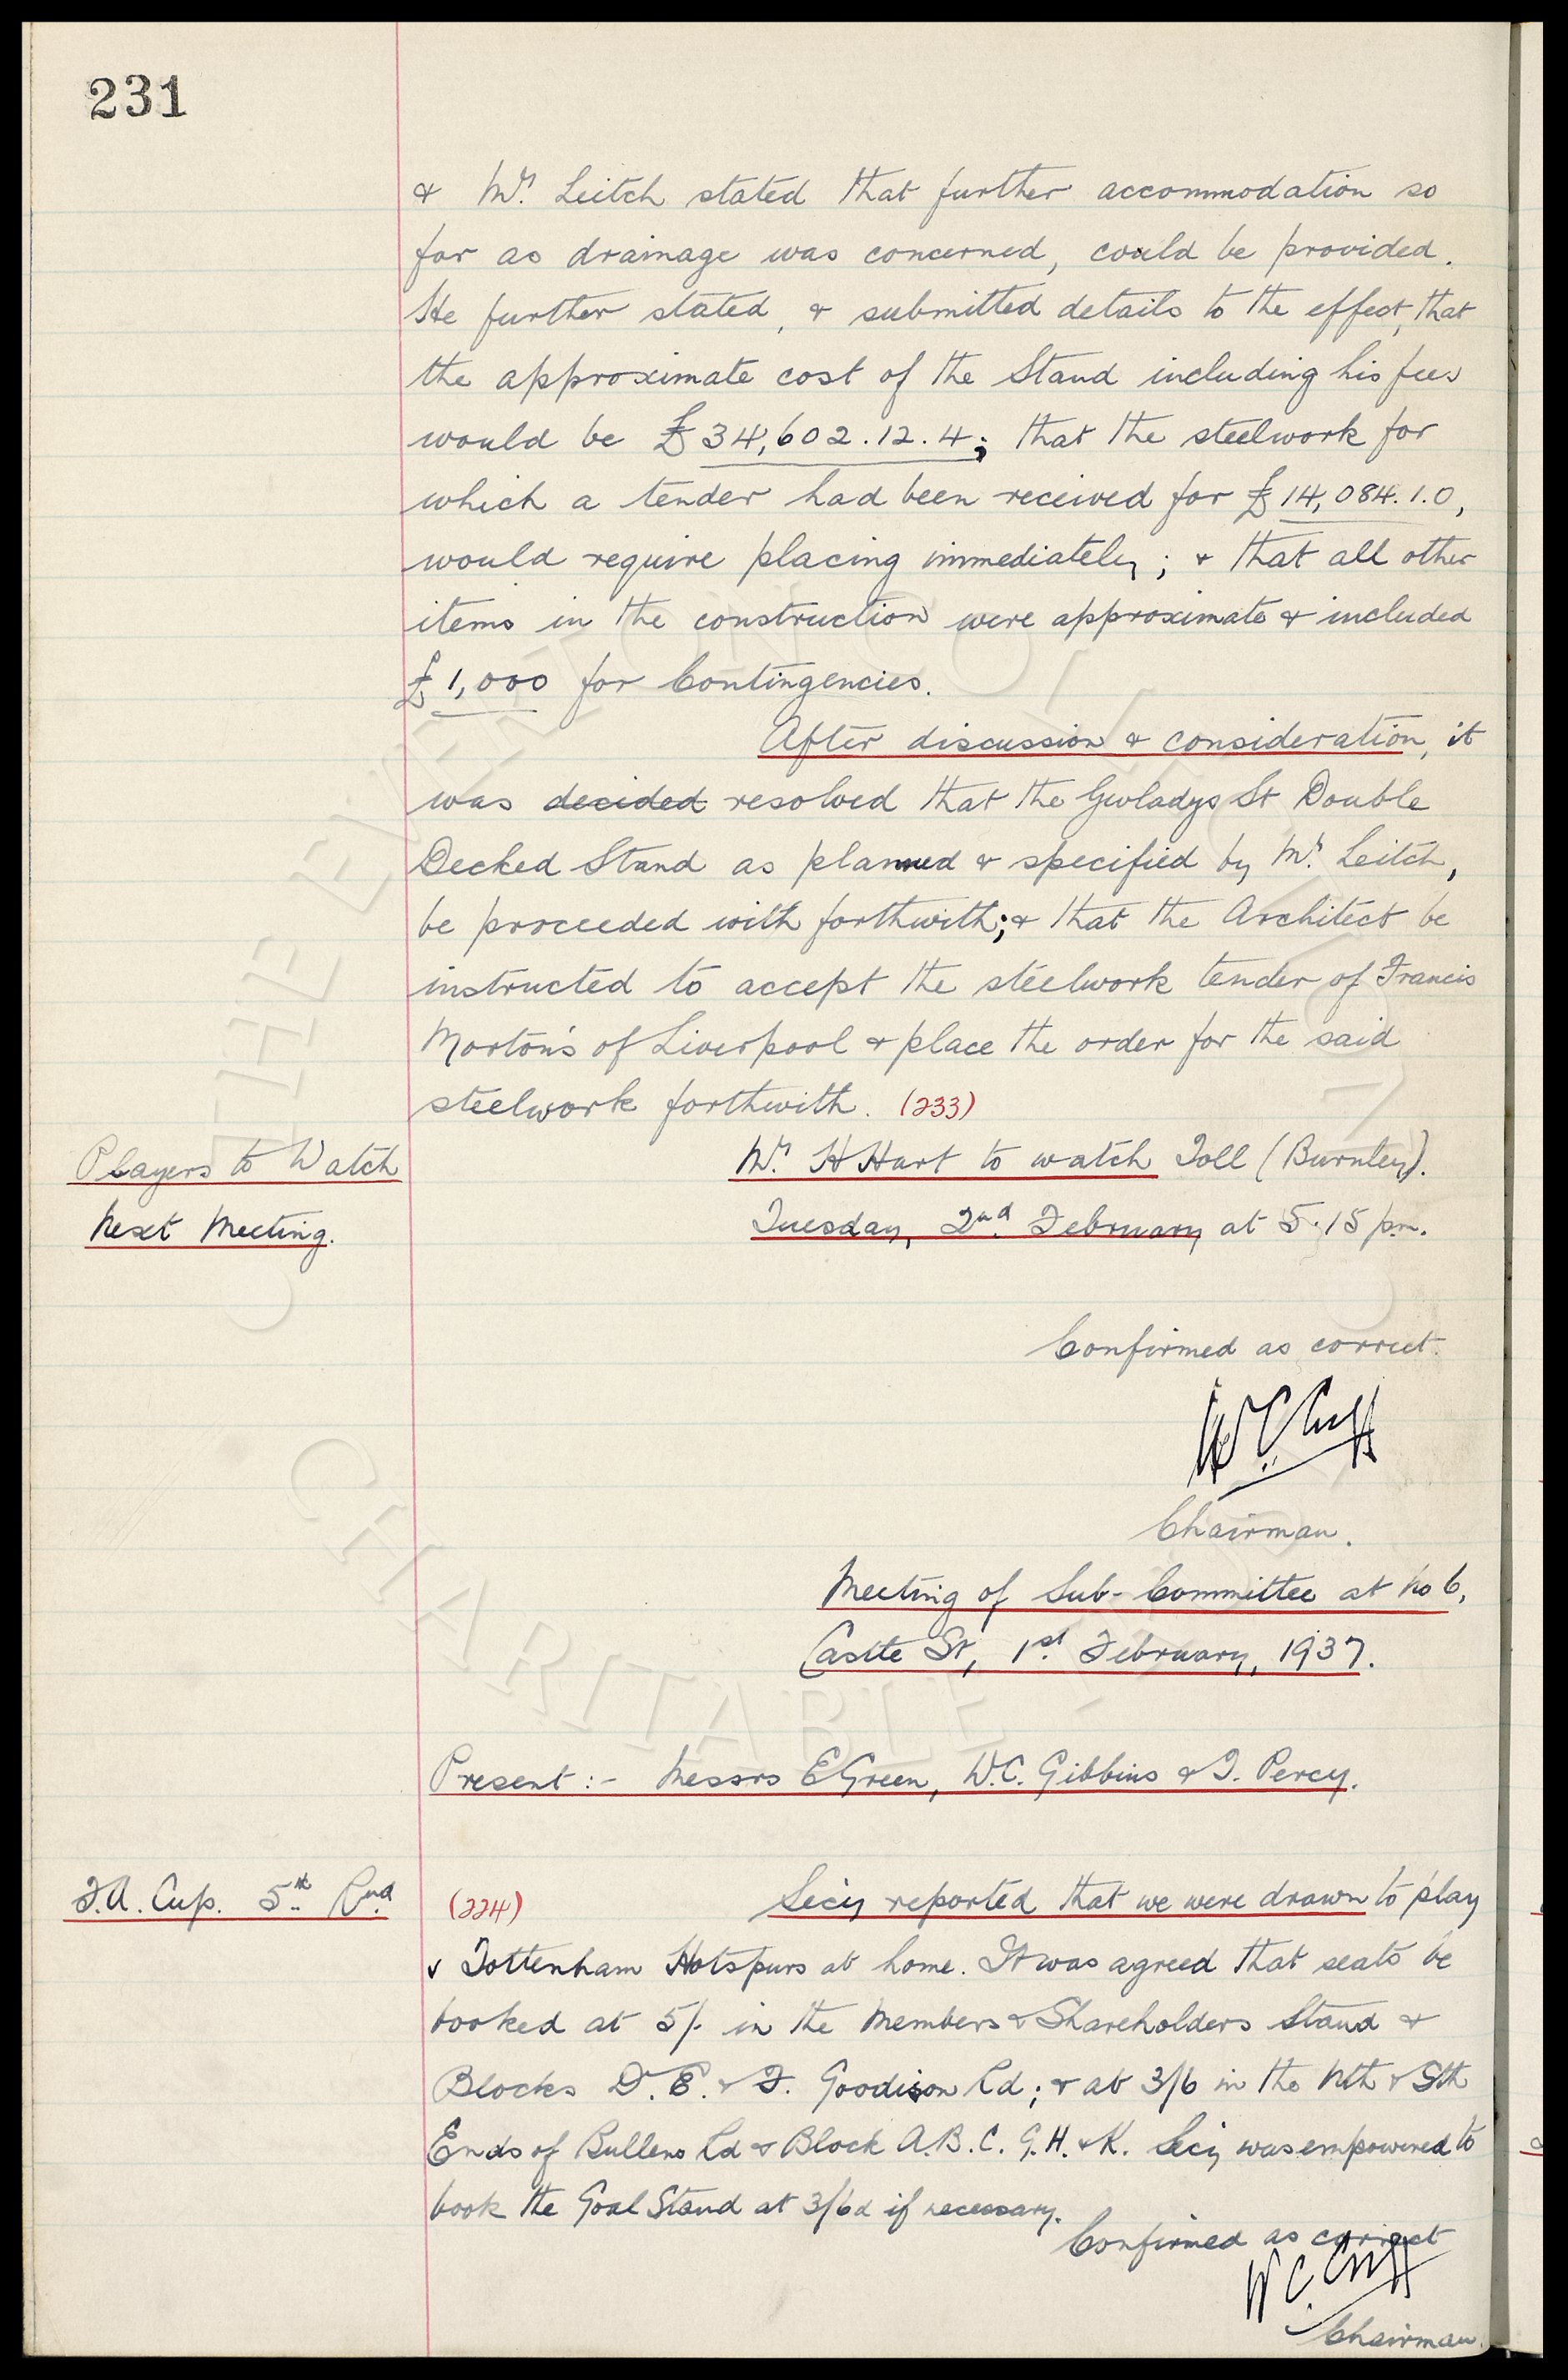 231
& Mr. Leitch stated that further accommodation so
far as drainage was concerned, could be provided.
He further stated, & submitted details to the effect, that
the approximate cost of the Stand including his fees
would be £34,602.12.4; that the steelwork for
which a tender had been received for £14,084.1.0,
would require placing immediately; & that all other
items in the construction were approximate & included
£1,000 for Contingencies.
After discussion & consideration, it
was decided resolved that the Gwladys St Double
Decked Stand as planned & specified by Mr. Leitch,
be proceeded with forthwith; & that the Architect be
instructed to accept the steelwork tender of Francis
Morton's of Liverpool & place the order for the said
steelwork forthwith. (233)
Players to Watch
Mr. H Hart to watch Toll (Burnley).
Next Meeting.
Tuesday, 2nd. February at 5.15 pm.
Confirmed as correct.
W.C. Cuff
Chairman.
Meeting of Sub-Committee at No 6,
Castle St, 1st. February, 1937.
Present :- Messrs E Green, W.C. Gibbins & J. Percy.
F.A. Cup. 5th Rnd
(224)
Secy reported that we were drawn to play
v Tottenham Hotspurs at home. It was agreed that seats be
booked at 5/- in the Members & Shareholders Stand &
Blocks D. E. & F. Goodison Rd; & at 3/6 in the Nth & Sth
Ends of Bullens Rd & Block A.B.C. G.H. & K. Secy was empowered to
book the Goal Stand at 3/6d if necessary.
Confirmed as correct
W.C. Cuff
Chairman.
THE EVERTON COLLECTION
CHARITABLE TRUST